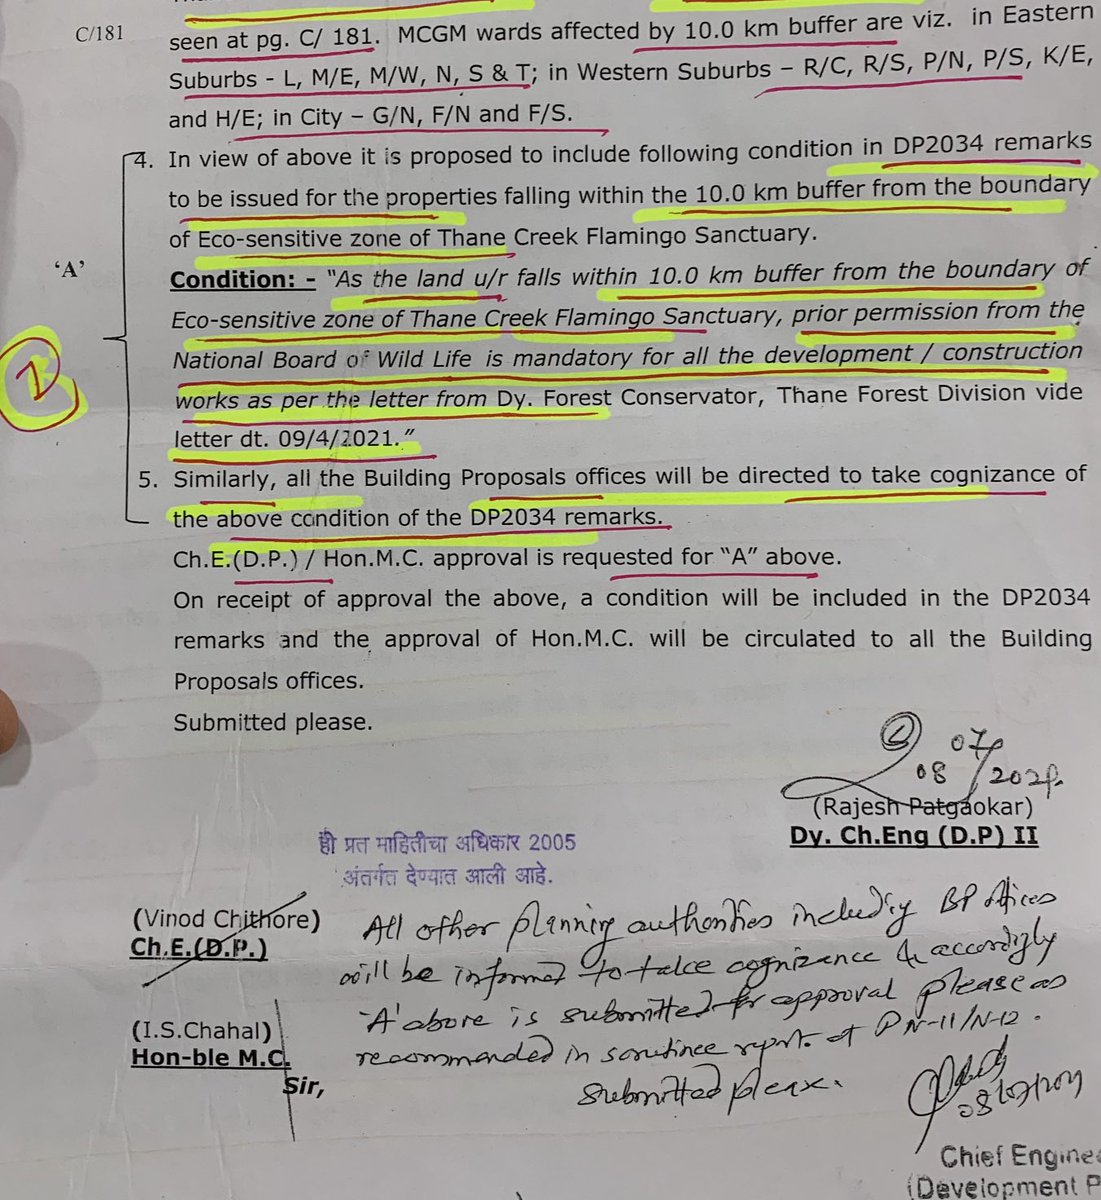 C/181
seen at pg. C/ 181. MCGM wards affected by 10.0 km buffer are viz. in Eastern
Suburbs - L, M/E, M/W, N, S & T; in Western Suburbs – R/C, R/S, P/N, P/S, K/E,
and H/E; in City – G/N, F/N and F/S.
4. In view of above it is proposed to include following condition in DP2034 remarks
to be issued for the properties falling within the 10.0 km buffer from the boundary
of Eco-sensitive zone of Thane Creek Flamingo Sanctuary.
'A'
Condition: - "As the land u/r falls within 10.0 km buffer from the boundary of
Eco-sensitive zone of Thane Creek Flamingo Sanctuary, prior permission from the
National Board of Wild Life is mandatory for all the development / construction
works as per the letter from Dy. Forest Conservator, Thane Forest Division vide
letter dt. 09/4/2021."
5. Similarly, all the Building Proposals offices will be directed to take cognizance of
the above condition of the DP2034 remarks.
Ch.E.(D.P.) / Hon.M.C. approval is requested for "A" above.
On receipt of approval the above, a condition will be included in the DP2034
remarks and the approval of Hon.M.C. will be circulated to all the Building
Proposals offices.
Submitted please.
07/
08/2021.
(Rajesh Patgaokar)
Dy. Ch.Eng (D.P) II
ही प्रत माहितीचा अधिकार 2005
अंतर्गत देण्यात आली आहे.
(Vinod Chithore)
Ch.E.(D.P.)
All other planning authorities including BP offices
will be informed to take cognizance & accordigly
'A' above is submitted for approval please as
recommended in scrutinee report at PN-11/N-12.
Submitted please.
(I.S.Chahal)
Hon-ble M.C.
Sir,
Chief Enginee
(Development P